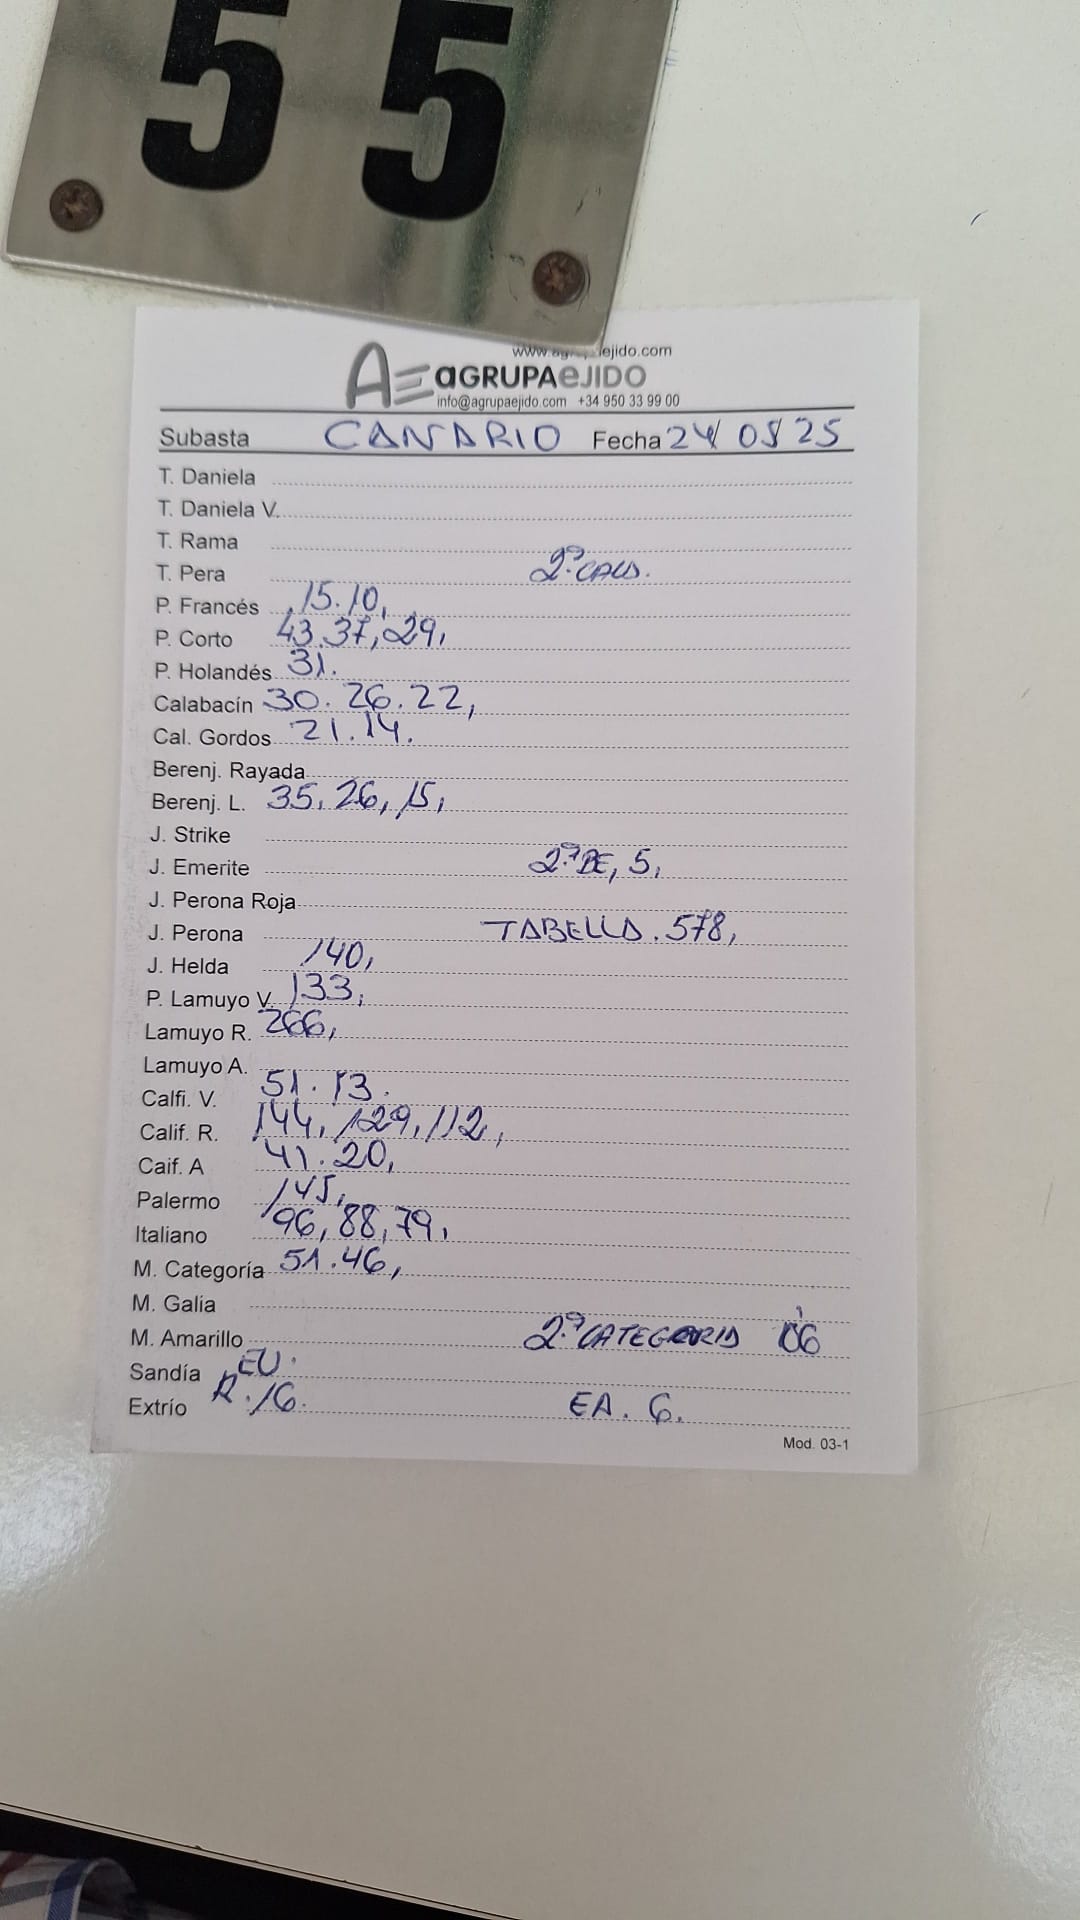 55
ejido.com
AE aGRUPAeJIDO
info@agrupaejido.com +34 950 33 99 00
Subasta CANARIO Fecha 24/05/25
T. Daniela
T. Daniela V.
T. Rama
T. Pera 2ª CALS.
P. Francés 15.10,
P. Corto 43.37,29,
P. Holandés 31.
Calabacín 30.26.22,
Cal. Gordos 21.14.
Berenj. Rayada
Berenj. L. 35,26,15,
J. Strike
J. Emerite 2ª BE, 5,
J. Perona Roja
J. Perona TABELLA. 578,
J. Helda 140,
P. Lamuyo V. 133,
Lamuyo R. 266,
Lamuyo A.
Calfi. V. 51.13.
Calif. R. 144,129,112,
Caif. A 41.20,
Palermo 145,
Italiano 96,88,79,
M. Categoría 51.46,
M. Galia
M. Amarillo 2ª CATEGORIA 06
Sandía EU.
Extrío R.16. EA. 6.
Mod. 03-1